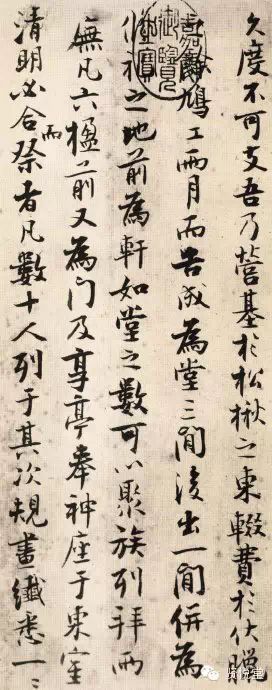 久度不可支吾乃營基於松楸之東輟費於伏臘
鳩工兩月而告成為堂三間後出一間併為
之地前為軒如堂之數可以聚族列拜兩
廡凡六楹前又為門及享亭奉神座于東室
清明必合祭者凡數十人列于其次規畫纖悉一〻
而
嘉慶御覽之寶